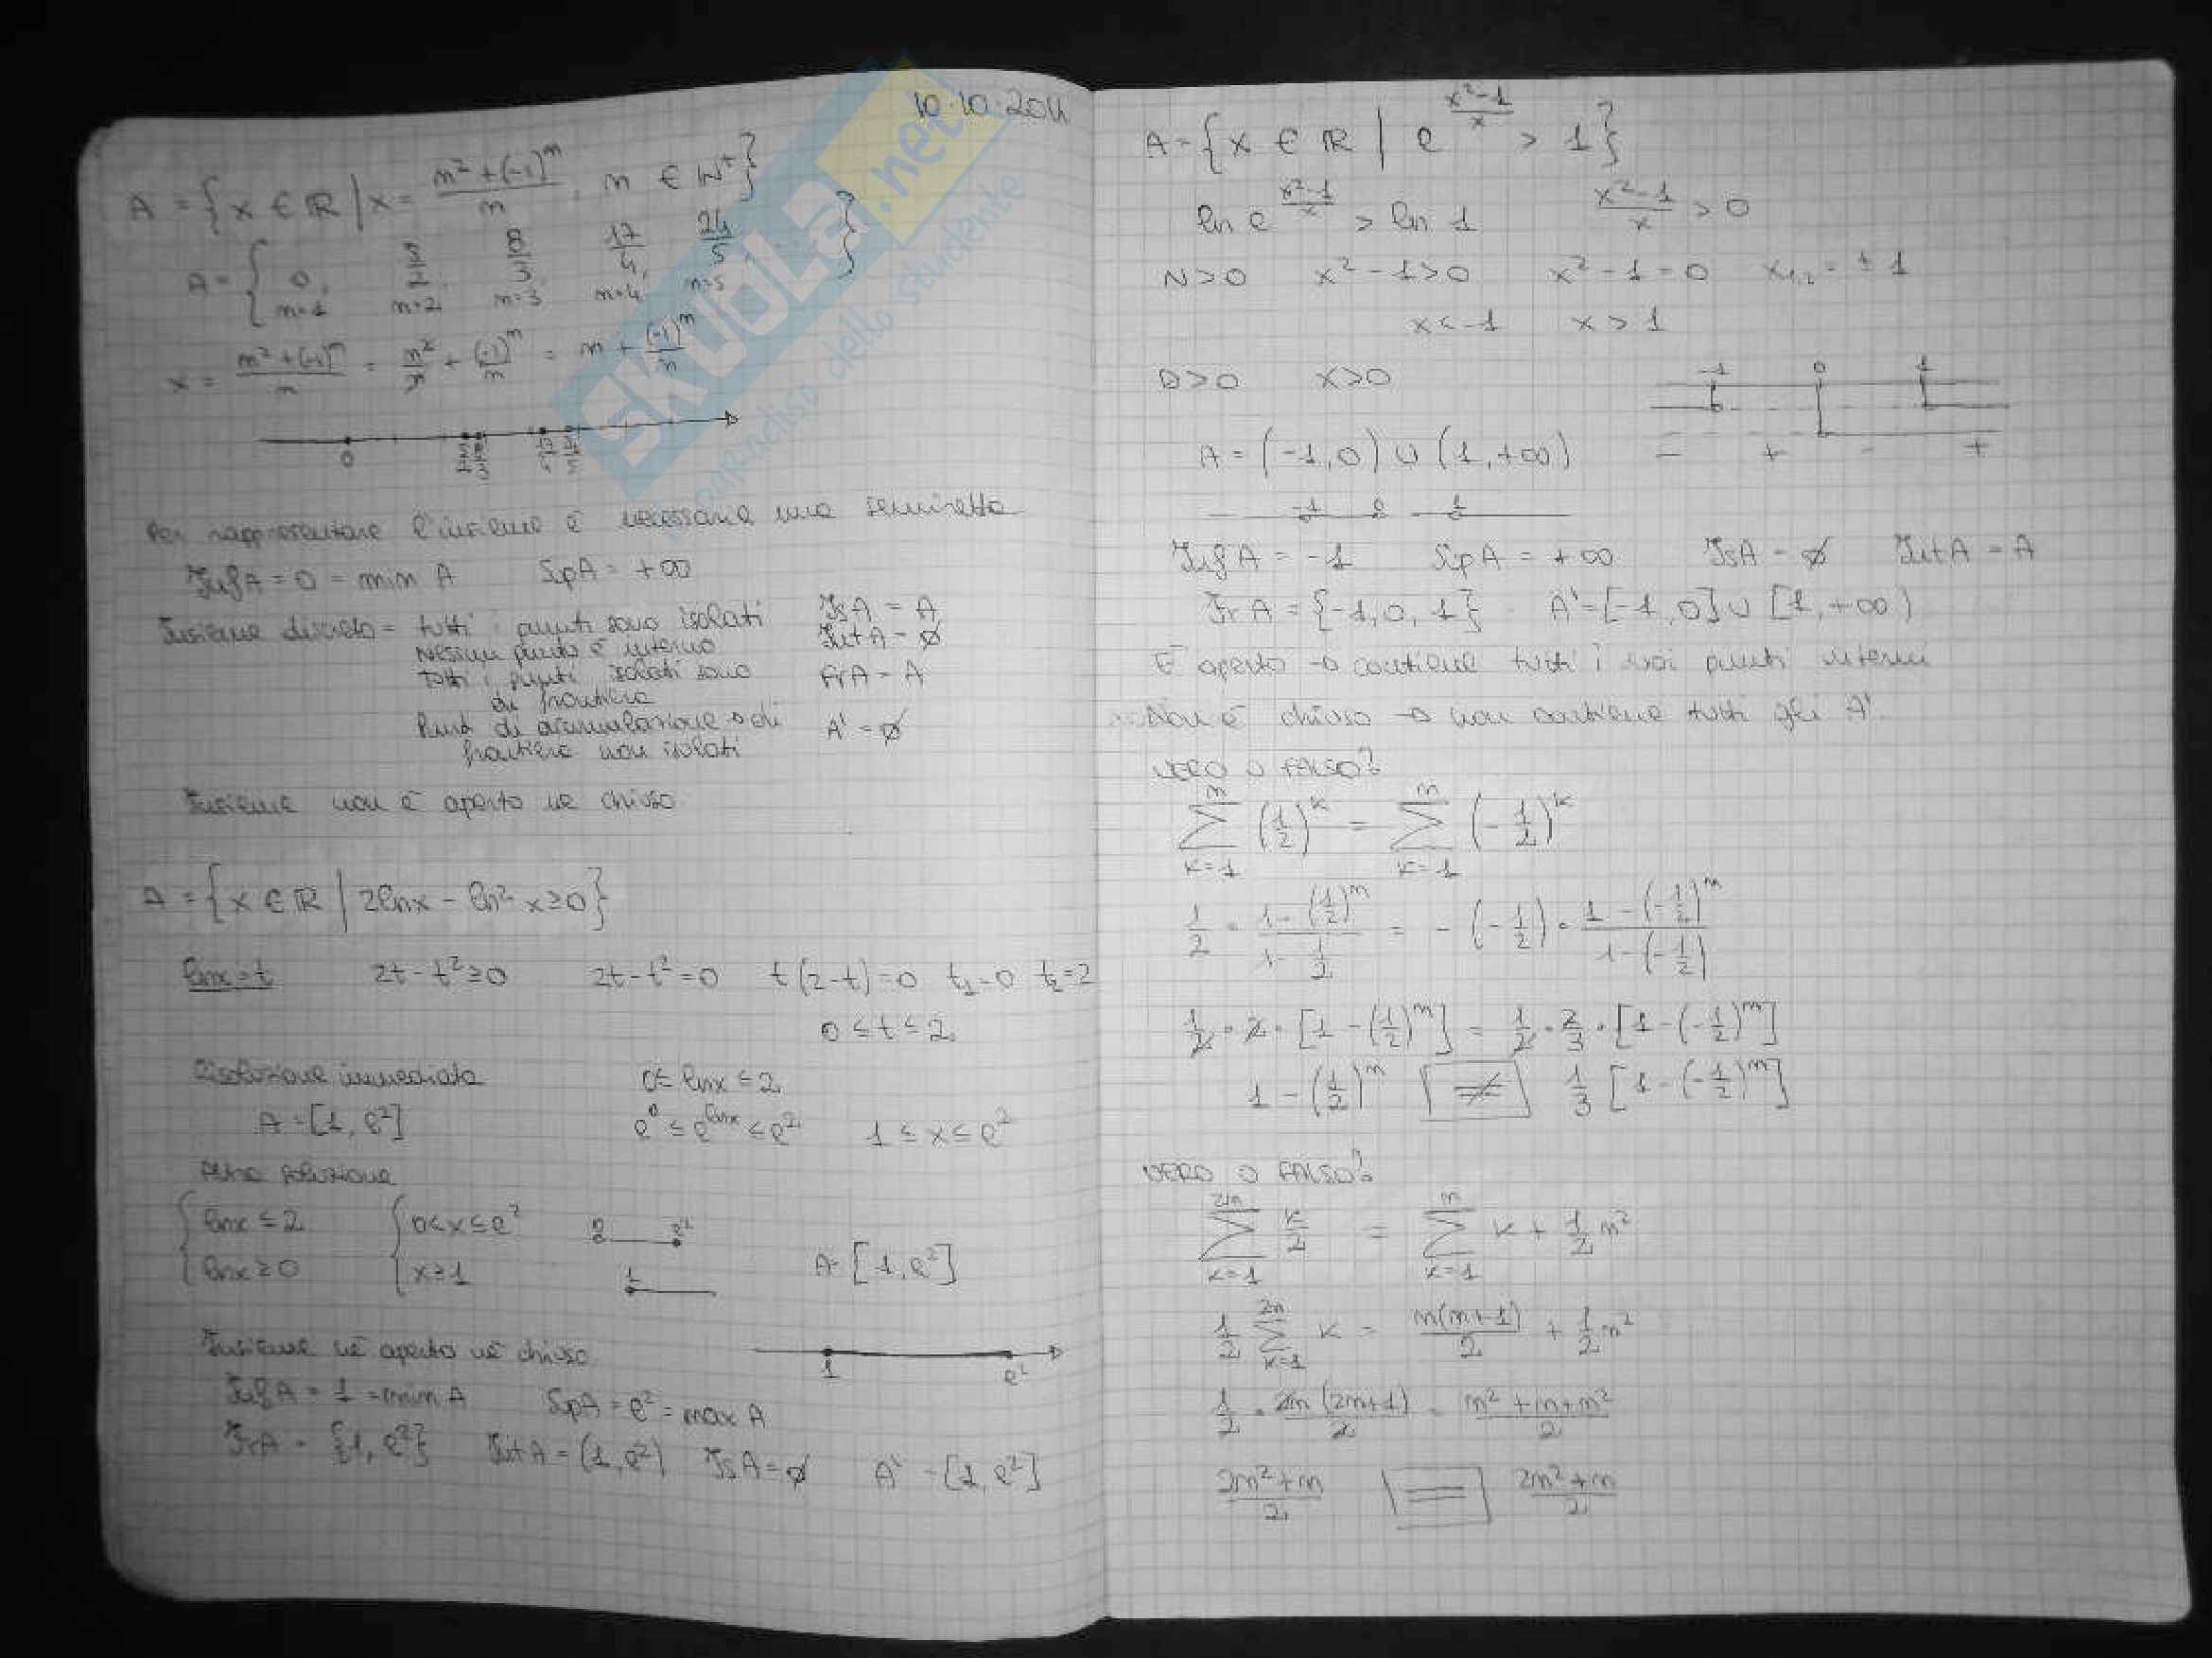 10.10.2011
A = { x ∈ ℝ | x = (n² + (-1)ⁿ)/n, n ∈ ℕ⁺ }
A = { 0, 5/2, 8/3, 17/4, 24/5, }
n=1 n=2 n=3 n=4 n=5
x = (n² + (-1)ⁿ)/n = n²/n + (-1)ⁿ/n = n + (-1)ⁿ/n
0 5/2 8/3 17/4 24/5
Per rappresentare l'insieme è necessaria una semiretta
Inf A = 0 = min A Sup A = +∞
Insieme discreto = tutti i punti sono isolati Is A = A
Nessun punto è interno Int A = ∅
Tutti i punti isolati sono di frontiera Fr A = A
Punti di accumulazione → di frontiera non isolati A' = ∅
Insieme non è aperto né chiuso
A = { x ∈ ℝ | 2lnx - ln²x ≥ 0 }
lnx = t 2t - t² ≥ 0 2t - t² = 0 t(2-t) = 0 t₁ = 0 t₂ = 2
0 ≤ t ≤ 2
Risoluzione immediata 0 ≤ lnx ≤ 2
A = [1, e²] e⁰ ≤ e^lnx ≤ e² 1 ≤ x ≤ e²
Altra soluzione
{ lnx ≤ 2 { 0 < x ≤ e² 0 e²
{ lnx ≥ 0 { x ≥ 1 1 A = [1, e²]
Insieme né aperto né chiuso 1 e²
Inf A = 1 = min A Sup A = e² = max A
Fr A = {1, e²} Int A = (1, e²) Is A = ∅ A' = [1, e²]
A = { x ∈ ℝ | e^((x²-1)/x) > 1 }
ln e^((x²-1)/x) > ln 1 (x²-1)/x > 0
N>0 x² - 1 > 0 x² - 1 = 0 x₁,₂ = ± 1
x < -1 x > 1
D>0 x>0 -1 0 1
A = (-1, 0) ∪ (1, +∞) - + - +
-1 0 1
Inf A = -1 Sup A = +∞ Is A = ∅ Int A = A
Fr A = {-1, 0, 1} A' = [-1, 0] ∪ [1, +∞)
È aperto → contiene tutti i suoi punti interni
Non è chiuso → non contiene tutti gli A'
VERO O FALSO?
∑_{k=1}^{n} (1/2)^k = ∑_{k=1}^{n} (-1/2)^k
1/2 · (1 - (1/2)ⁿ)/(1 - 1/2) = - (-1/2) · (1 - (-1/2)ⁿ)/(1 - (-1/2))
1/2 · 2 · [1 - (1/2)ⁿ] = 1/2 · 2/3 · [1 - (-1/2)ⁿ]
1 - (1/2)ⁿ ≠ 1/3 [1 - (-1/2)ⁿ]
VERO O FALSO?
∑_{k=1}^{2n} k/2 = ∑_{k=1}^{n} k + 1/2 n²
1/2 ∑_{k=1}^{2n} k = n(n+1)/2 + 1/2 n²
1/2 · 2n(2n+1)/2 = (n² + n + n²)/2
(2n² + n)/2 = (2n² + n)/2
SKUOLA.net
il paradiso dello studente